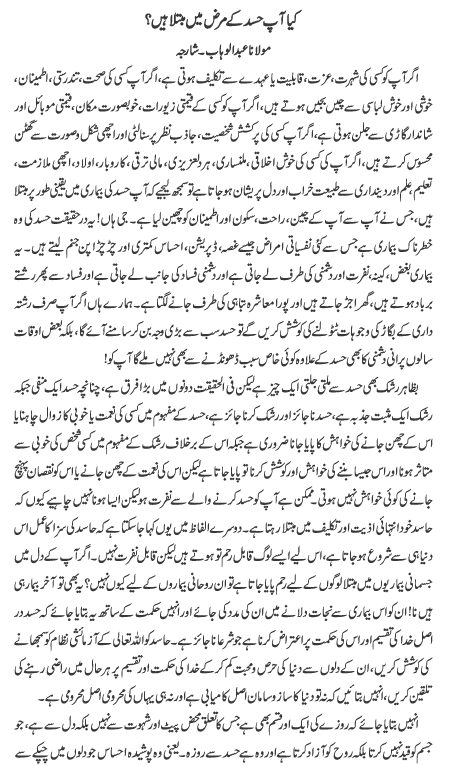 کیا آپ حسد کے مرض میں مبتلا ہیں؟
مولانا عبدالوہاب۔شارجہ
اگر آپ کو کسی کی شہرت، عزت، قابلیت یا عہدے سے تکلیف ہوتی ہے، اگر آپ کسی کی صحت، تندرستی، اطمینان،
خوشی اور خوش لباسی سے چیں بجبیں ہوتے ہیں، اگر آپ کو کسی کے قیمتی زیورات، خوبصورت مکان، قیمتی موبائل اور
شاندار گاڑی سے جلن ہوتی ہے، اگر آپ کسی کی پرکشش شخصیت، جاذب نظر پرسنالٹی اور اچھی شکل وصورت سے گھٹن
محسوس کرتے ہیں، اگر آپ کی کسی کی خوش اخلاقی، ملنساری، ہردلعزیزی، مالی ترقی، کاروبار، اولاد، اچھی ملازمت،
تعلیم، علم اور دینداری سے طبیعت خراب اور دل پریشان ہوجاتا ہے تو سمجھ لیجیے کہ آپ حسد کی بیماری میں یقینی طور پر مبتلا
ہیں، جس نے آپ سے آپ کے چین، راحت، سکون اور اطمینان کو چھین لیا ہے۔ جی ہاں! یہ درحقیقت حسد کی وہ
خطرناک بیماری ہے جس سے کئی نفسیاتی امراض جیسے غصہ، ڈپریشن، احساس کمتری اور چڑچڑا پن جنم لیتے ہیں۔ یہ
بیماری بغض، کینہ، نفرت اور دشمنی کی طرف لے جاتی ہے اور دشمنی فساد کی جانب لے جاتی ہے اور فساد سے پھر رشتے
برباد ہوتے ہیں، گھر اجڑ جاتے ہیں اور پورا معاشرہ تباہی کی طرف جانے لگتا ہے۔ ہمارے ہاں اگر آپ صرف رشتہ
داری کے بگاڑ کی وجوہات ٹٹولنے کی کوشش کریں گے تو حسد سب سے بڑی وجہ بن کر سامنے آئے گا، بلکہ بعض اوقات
سالوں پرانی دشمنی کا بھی حسد کے علاوہ کوئی خاص سبب ڈھونڈنے سے بھی نہیں ملے گا آپ کو!
بظاہر رشک بھی حسد سے ملتی جلتی ایک چیز ہے لیکن فی الحقیقت دونوں میں بڑا فرق ہے، چنانچہ حسد ایک منفی جبکہ
رشک ایک مثبت جذبہ ہے، حسد ناجائز اور رشک کرنا جائز ہے، حسد کے مفہوم میں کسی کی نعمت یا خوبی کا زوال چاہنا یا
اس کے چھن جانے کی خواہش کا پایا جانا ضروری ہے جبکہ اس کے برخلاف رشک کے مفہوم میں کسی شخص کی خوبی سے
متاثر ہونا اور اس جیسا بننے کی خواہش اور کوشش کرنا تو پایا جاتا ہے لیکن اس کی نعمت کے چھن جانے یا اس کو نقصان پہنچ
جانے کی کوئی خواہش نہیں ہوتی۔ ممکن ہے آپ کو حسد کرنے والے سے نفرت ہو لیکن ایسا ہونا نہیں چاہیے کیوں کہ
حاسد خود انتہائی اذیت اور تکلیف میں مبتلا رہتا ہے۔ دوسرے الفاظ میں یوں کہا جاسکتا ہے کہ حاسد کی سزا کا عمل اس
دنیا ہی سے شروع ہوجاتا ہے، اس لیے ایسے لوگ قابل رحم تو ہوتے ہیں لیکن قابل نفرت نہیں۔ اگر آپ کے دل میں
جسمانی بیماریوں میں مبتلا لوگوں کے لیے رحم پایا جاتا ہے تو ان روحانی بیماروں کے لیے کیوں نہیں؟ یہ بھی تو آخر بیمار ہی
ہیں نا! ان کو اس بیماری سے نجات دلانے میں ان کی مدد کی جائے اور انہیں حکمت کے ساتھ یہ بتایا جائے کہ حسد در
اصل خدا کی تقسیم اور اس کی حکمت پر اعتراض کرنا ہے جو شرعاً ناجائز ہے۔ حاسد کو اللہ تعالی کے آزمائشی نظام کو سمجھانے
کی کوشش کریں، ان کے دلوں سے دنیا کی حرص ومحبت کم کرکے خدا کی حکمت اور تقسیم پر ہر حال میں راضی رہنے کی
تلقین کریں، انہیں بتائیں کہ نہ تو دنیا کا ساز وسامان اصل کامیابی ہے اور نہ ہی یہاں کی محرومی اصل محرومی ہے۔
انہیں بتایا جائے کہ روزے کی ایک اور قسم بھی ہے جس کا تعلق محض پیٹ اور شہوت سے نہیں بلکہ دل سے ہے، جو
جسم کو قید نہیں کرتا بلکہ روح کو آزاد کرتا ہے اور وہ ہے حسد سے روزہ۔ یعنی وہ پوشیدہ احساس جو دلوں میں چپکے سے